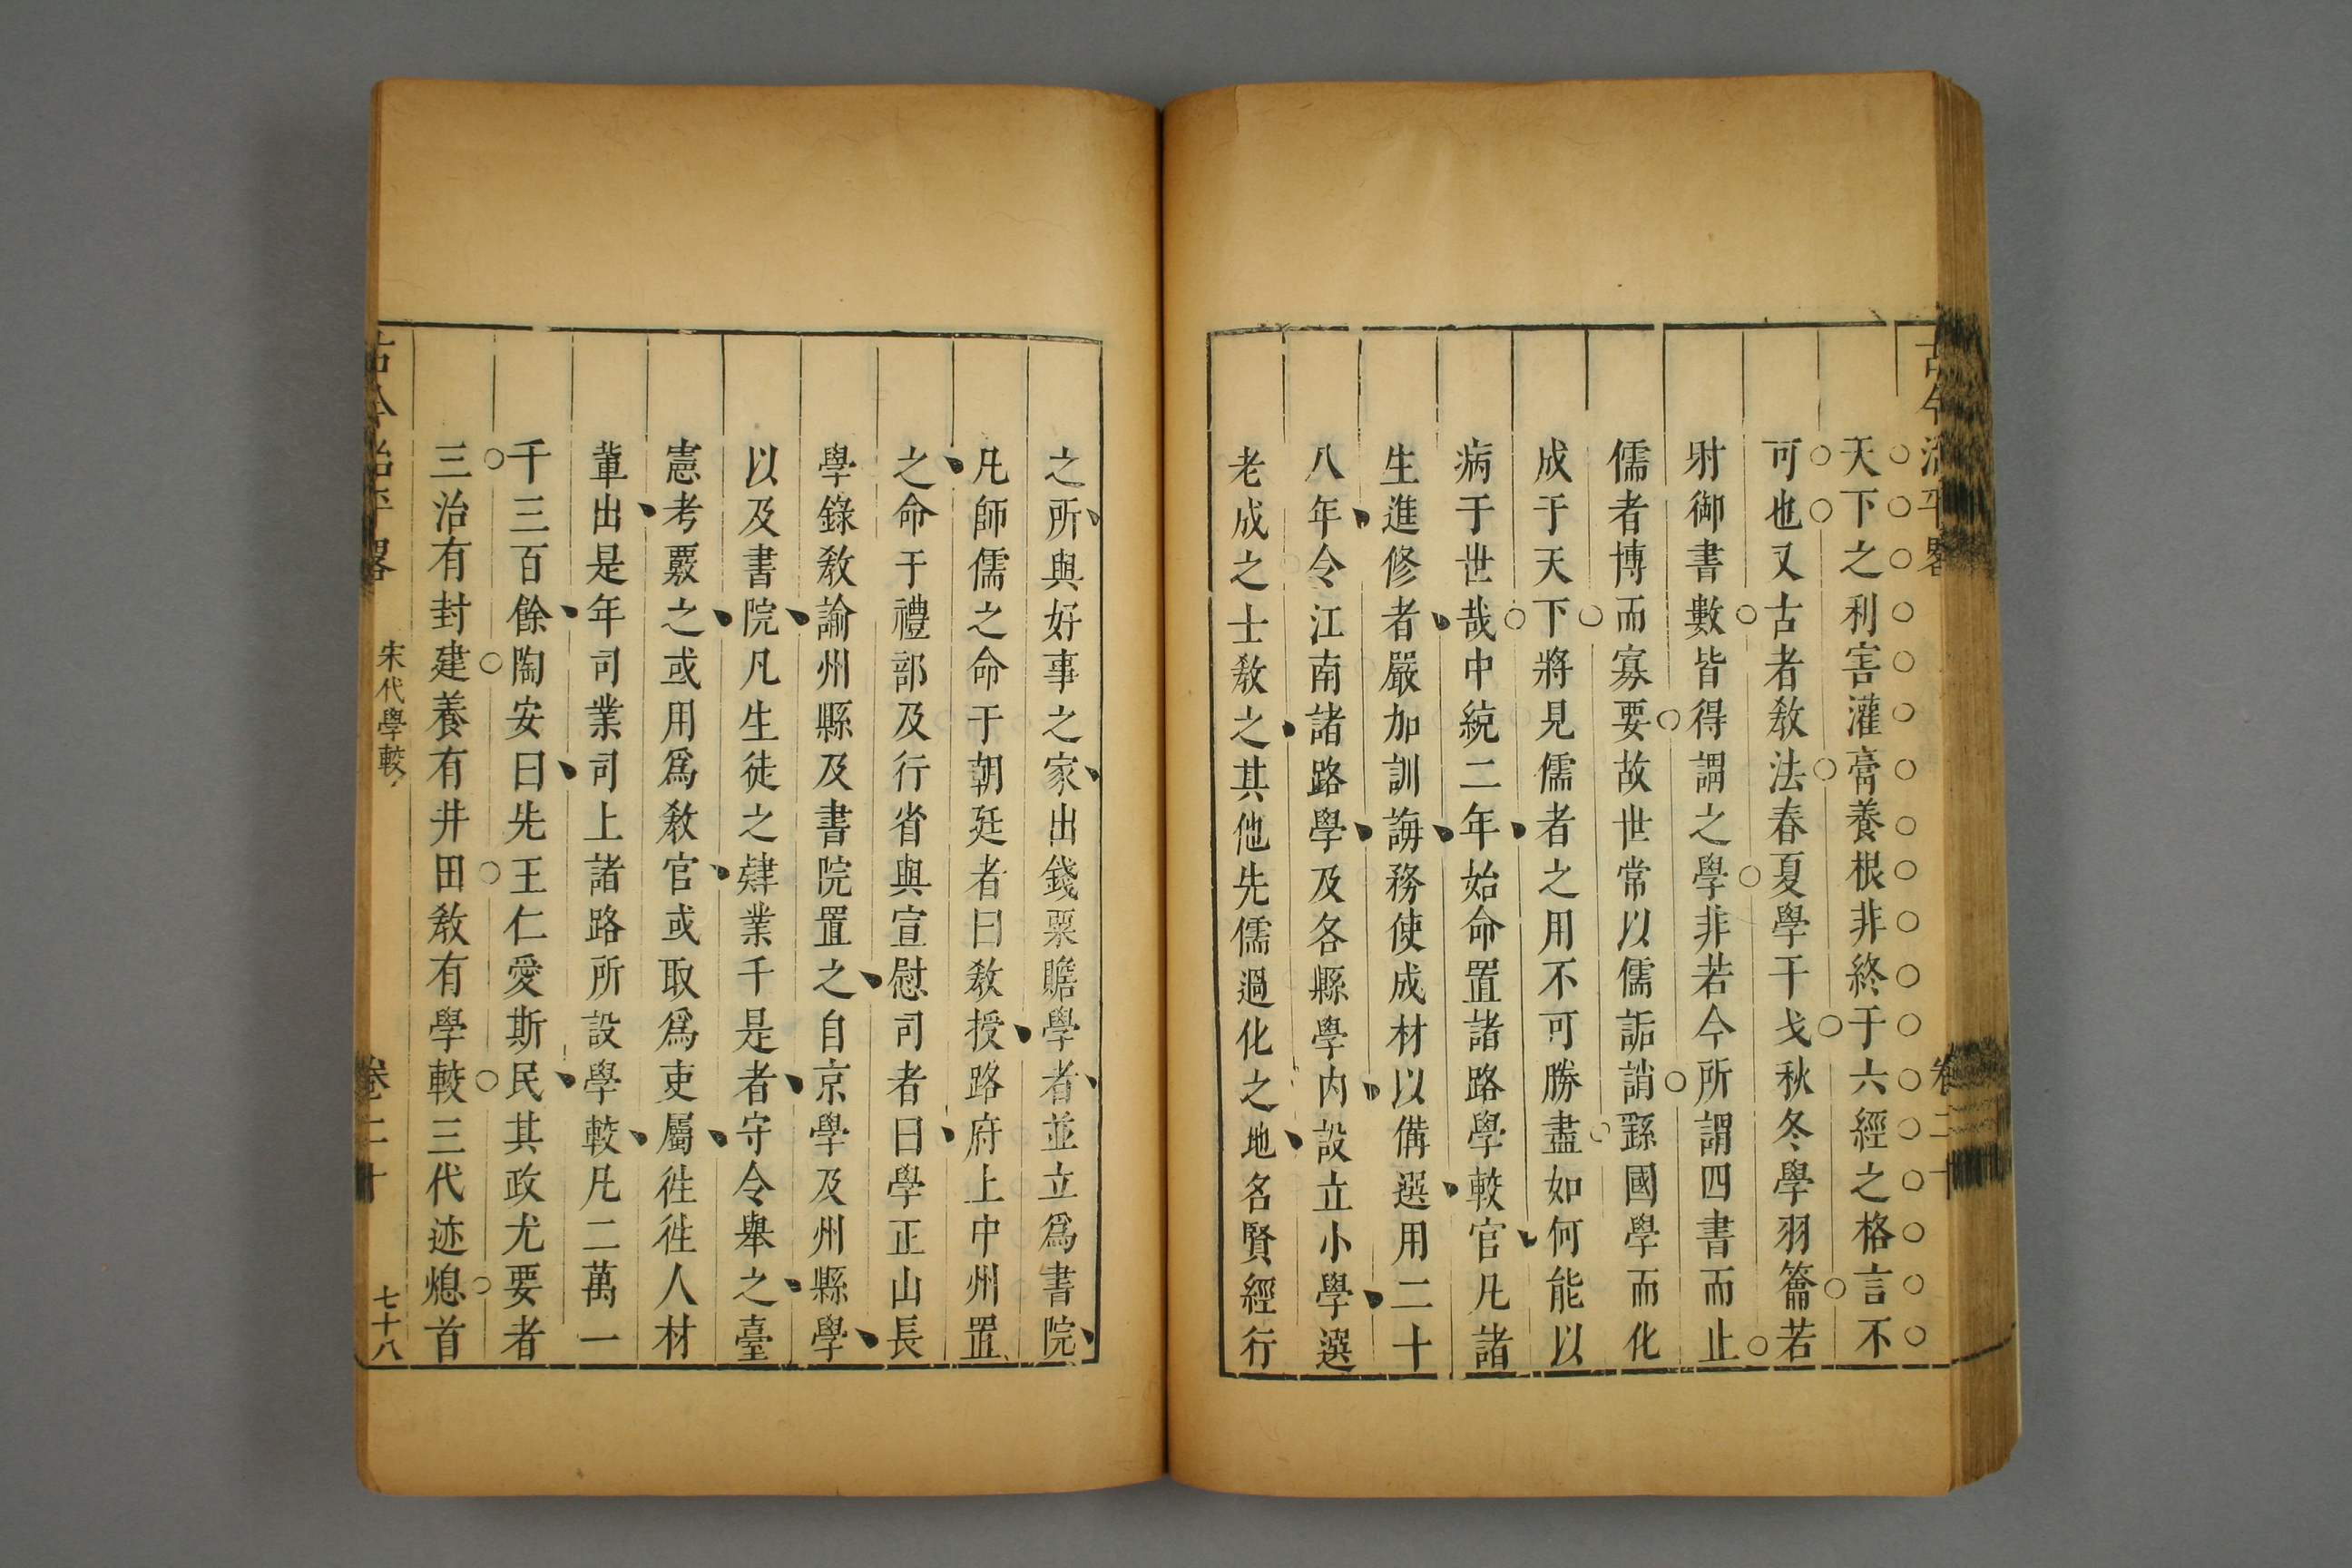 古今治平畧
卷二十
天下之利害灌膏養根非終于六經之格言不
可也又古者敎法春夏學干戈秋冬學羽籥若
射御書數皆得謂之學非若今所謂四書而止
儒者博而寡要故世常以儒詬誚繇國學而化
成于天下將見儒者之用不可勝盡如何能以
病于世哉中統二年始命置諸路學較官凡諸
生進修者嚴加訓誨務使成材以備選用二十
八年令江南諸路學及各縣學内設立小學選
老成之士敎之其他先儒過化之地名賢經行
之所與好事之家出錢粟贍學者並立爲書院
凡師儒之命于朝廷者曰敎授路府上中州置
之命于禮部及行省與宣慰司者曰學正山長
學錄敎諭州縣及書院置之自京學及州縣學
以及書院凡生徒之肄業于是者守令舉之臺
憲考覈之或用爲敎官或取爲吏屬徃徃人材
輩出是年司業司上諸路所設學較凡二萬一
千三百餘陶安曰先王仁愛斯民其政尤要者
三治有封建養有井田敎有學較三代迹熄首
古今治平畧
宋代學較
卷二十
七十八